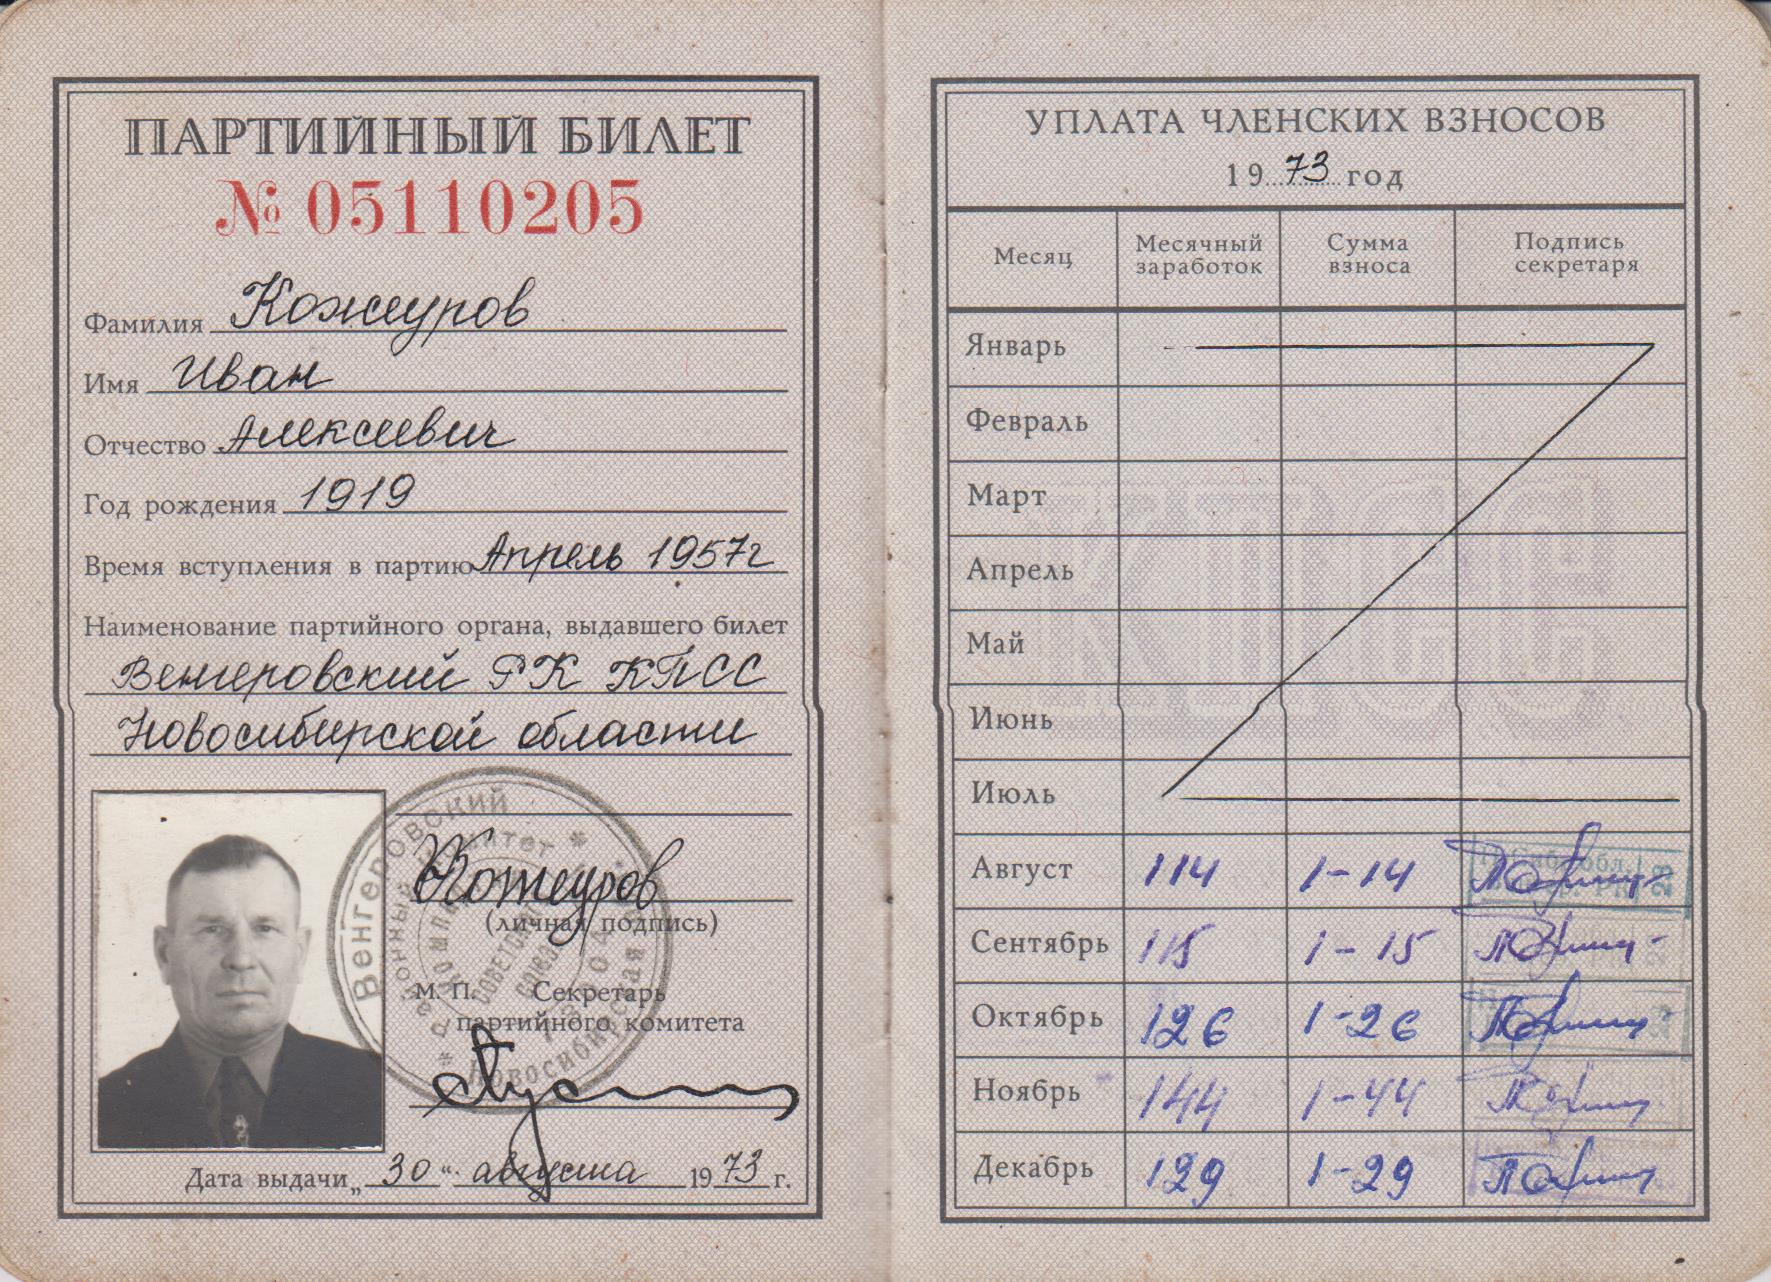 ПАРТИЙНЫЙ БИЛЕТ
№ 05110205
Фамилия Кожеуров
Имя Иван
Отчество Алексеевич
Год рождения 1919
Время вступления в партию Апрель 1957г
Наименование партийного органа, выдавшего билет
Венгеровский РК КПСС
Новосибирской области
Кожеуров
(личная подпись)
М. П. Секретарь
партийного комитета
Дата выдачи „30“ августа 1973 г.
Венгеровский
районный комитет
Советского
Союза
Новосибирская
УПЛАТА ЧЛЕНСКИХ ВЗНОСОВ
1973 год
Месяц Месячный заработок Сумма взноса Подпись секретаря
Январь
Февраль
Март
Апрель
Май
Июнь
Июль
Август 114 1-14
Сентябрь 115 1-15
Октябрь 126 1-26
Ноябрь 144 1-44
Декабрь 129 1-29
КПСС